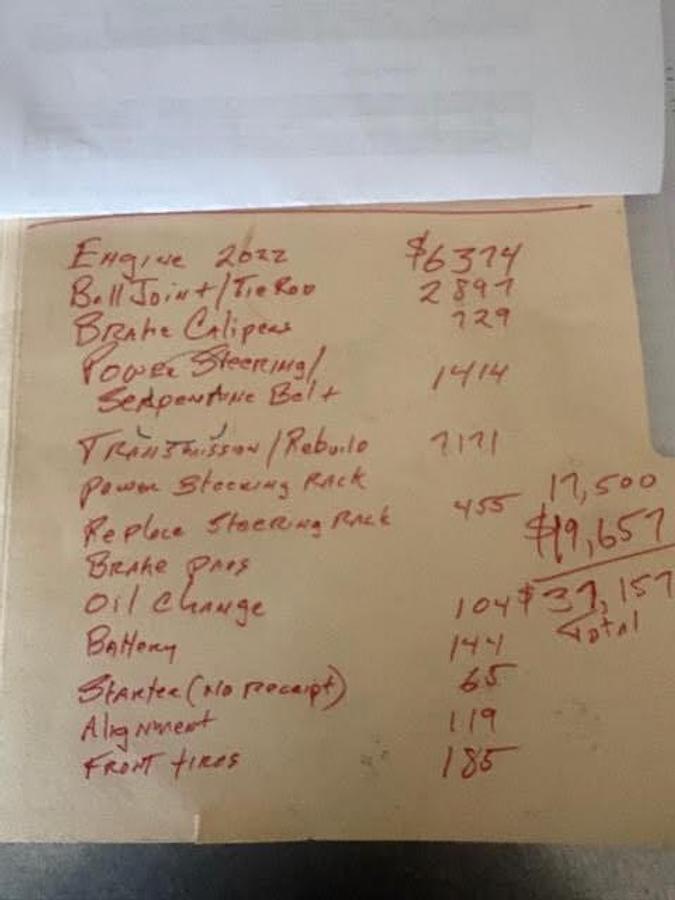 Engine 2022 $6374
Ball Joint/Tie Rod 2897
Brake Calipers 729
Power Steering/
Serpentine Belt 1414
Transmission/Rebuild 7171
Power Steering Rack
Replace Steering Rack 455
Brake pads
Oil Change 104
Battery 144
Starter (No receipt) 65
Alignment 119
Front tires 185
17,500
$19,657
$37,157
Total